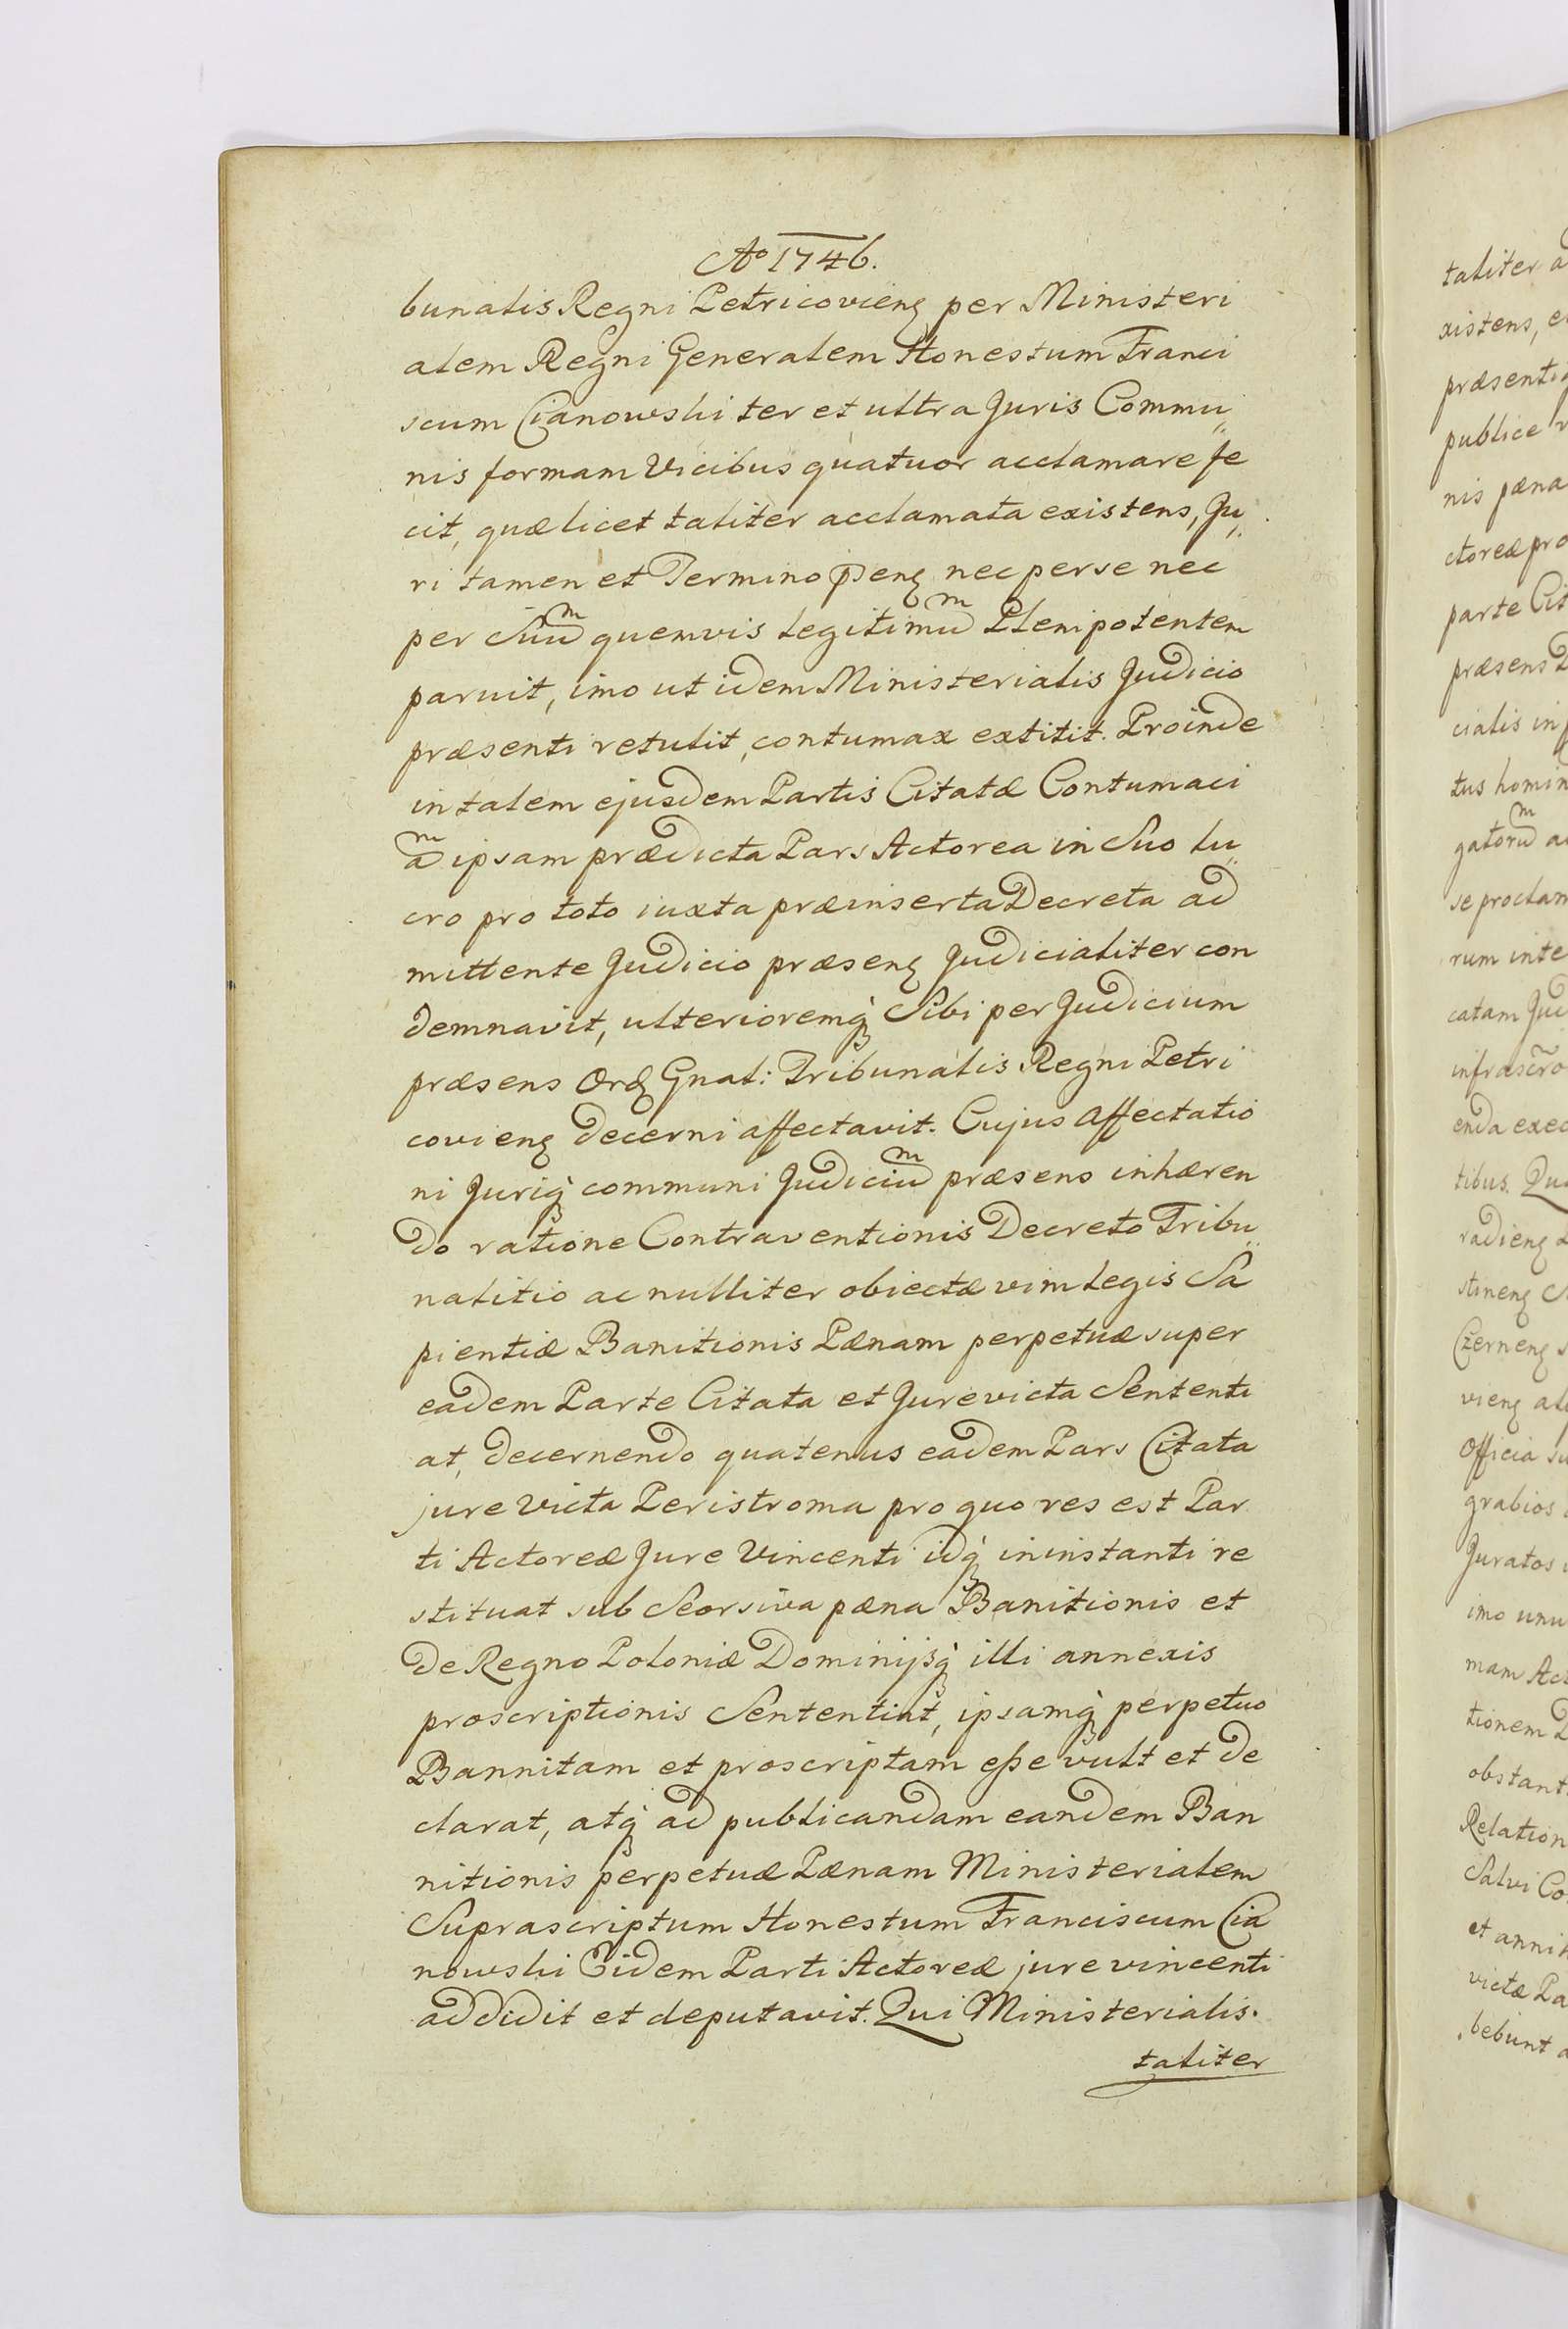 Ao 1746.
bunalis Regni Petricovienꝫ per Ministeri
alem Regni Generalem Honestum Franci
scum Cianowski ter et ultra Juris Commu„
nis formam Vicibus quatuor acclamare fe
cit, quæ licet taliter acclamata existens, Ju„
ri tamen et Termino p̄senꝫ nec per se nec
per Suuᵐ quemvis legitimuᵐ Plenipotentem
paruit, imo ut idem Ministerialis Judicio
præsenti retulit, contumax extitit. Proinde
in talem ejusdem Partis Citatæ Contumaci
aᵐ ipsam prædicta Pars Actorea in Suo lu„
cro pro toto iuxta præinserta Decreta ad
mittente Judicio præsenꝫ Judicialiter con
demnavit, ulterioremq̀ꝫ Sibi per Judicium
præsens Ordꝫ Gnal: Tribunalis Regni Petri
covienꝫ decerni affectavit. Cujus Affectatio
ni Juriq̀ꝫ communi Judiciuᵐ præsens inhæren
do ratione Contraventionis Decreto Tribu„
nalitio ac nulliter obiectæ vim legis Sa
pientiæ Banitionis Pænam perpetuæ super
eadem Parte Citata et Jurevicta Sententi
at, decernendo quatenus eadem Pars Citata
jure Victa Peristroma pro quo res est Par
ti Actoreæ Jure Vincenti idq̀ꝫ in instanti re
stituat sub Seorsiva pæna Banitionis et
de Regno Poloniæ Dominijsq̀ꝫ illi annexis
proscriptionis Sententiat, ipsamq̀ꝫ perpetuo
Bannitam et proscriptam eſse vult et de
clarat, atq̀ꝫ ad publicandam eandem Ban
nitionis perpetuæ Pænam Ministerialem
Suprascriptum Honestum Franciscum Cia
nowski Eidem Parti Actoreæ jure vincenti
addidit et deputavit. Qui Ministerialis.
taliter
taliter
xistens,
publice
nis pæna
ctoreæ pro
parte
præsens
cialis in
tus homin
gatoruᵐ
se proclam
rum inte
catam Jud
enda exec
tibus.
Officia
grabios
Juratos
imo unu
mam Act
tionem
obstant
Relation
Salvi Co
et anni
victæ Pa
bebunt